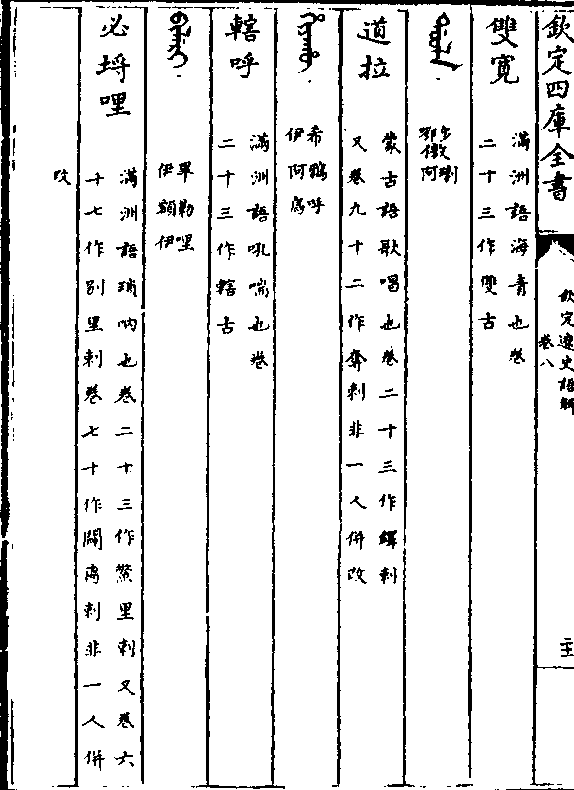 欽定四庫全書
欽定遼史語解
卷八
雙寛
滿洲語海青也卷
二十三作雙古
鄂㣲阿
道拉
蒙古語歌唱也卷二十三作鐸剌
又卷九十二作奪剌非一人併改
希鴉呼
伊阿烏
轄呼
滿洲語吼喘也卷
二十三作轄古
畢勒哩
伊額伊
必埓哩
滿洲語瑣吶也卷二十三作鱉里剌又卷六
十七作别里剌卷七十作闢离剌非一人併
改